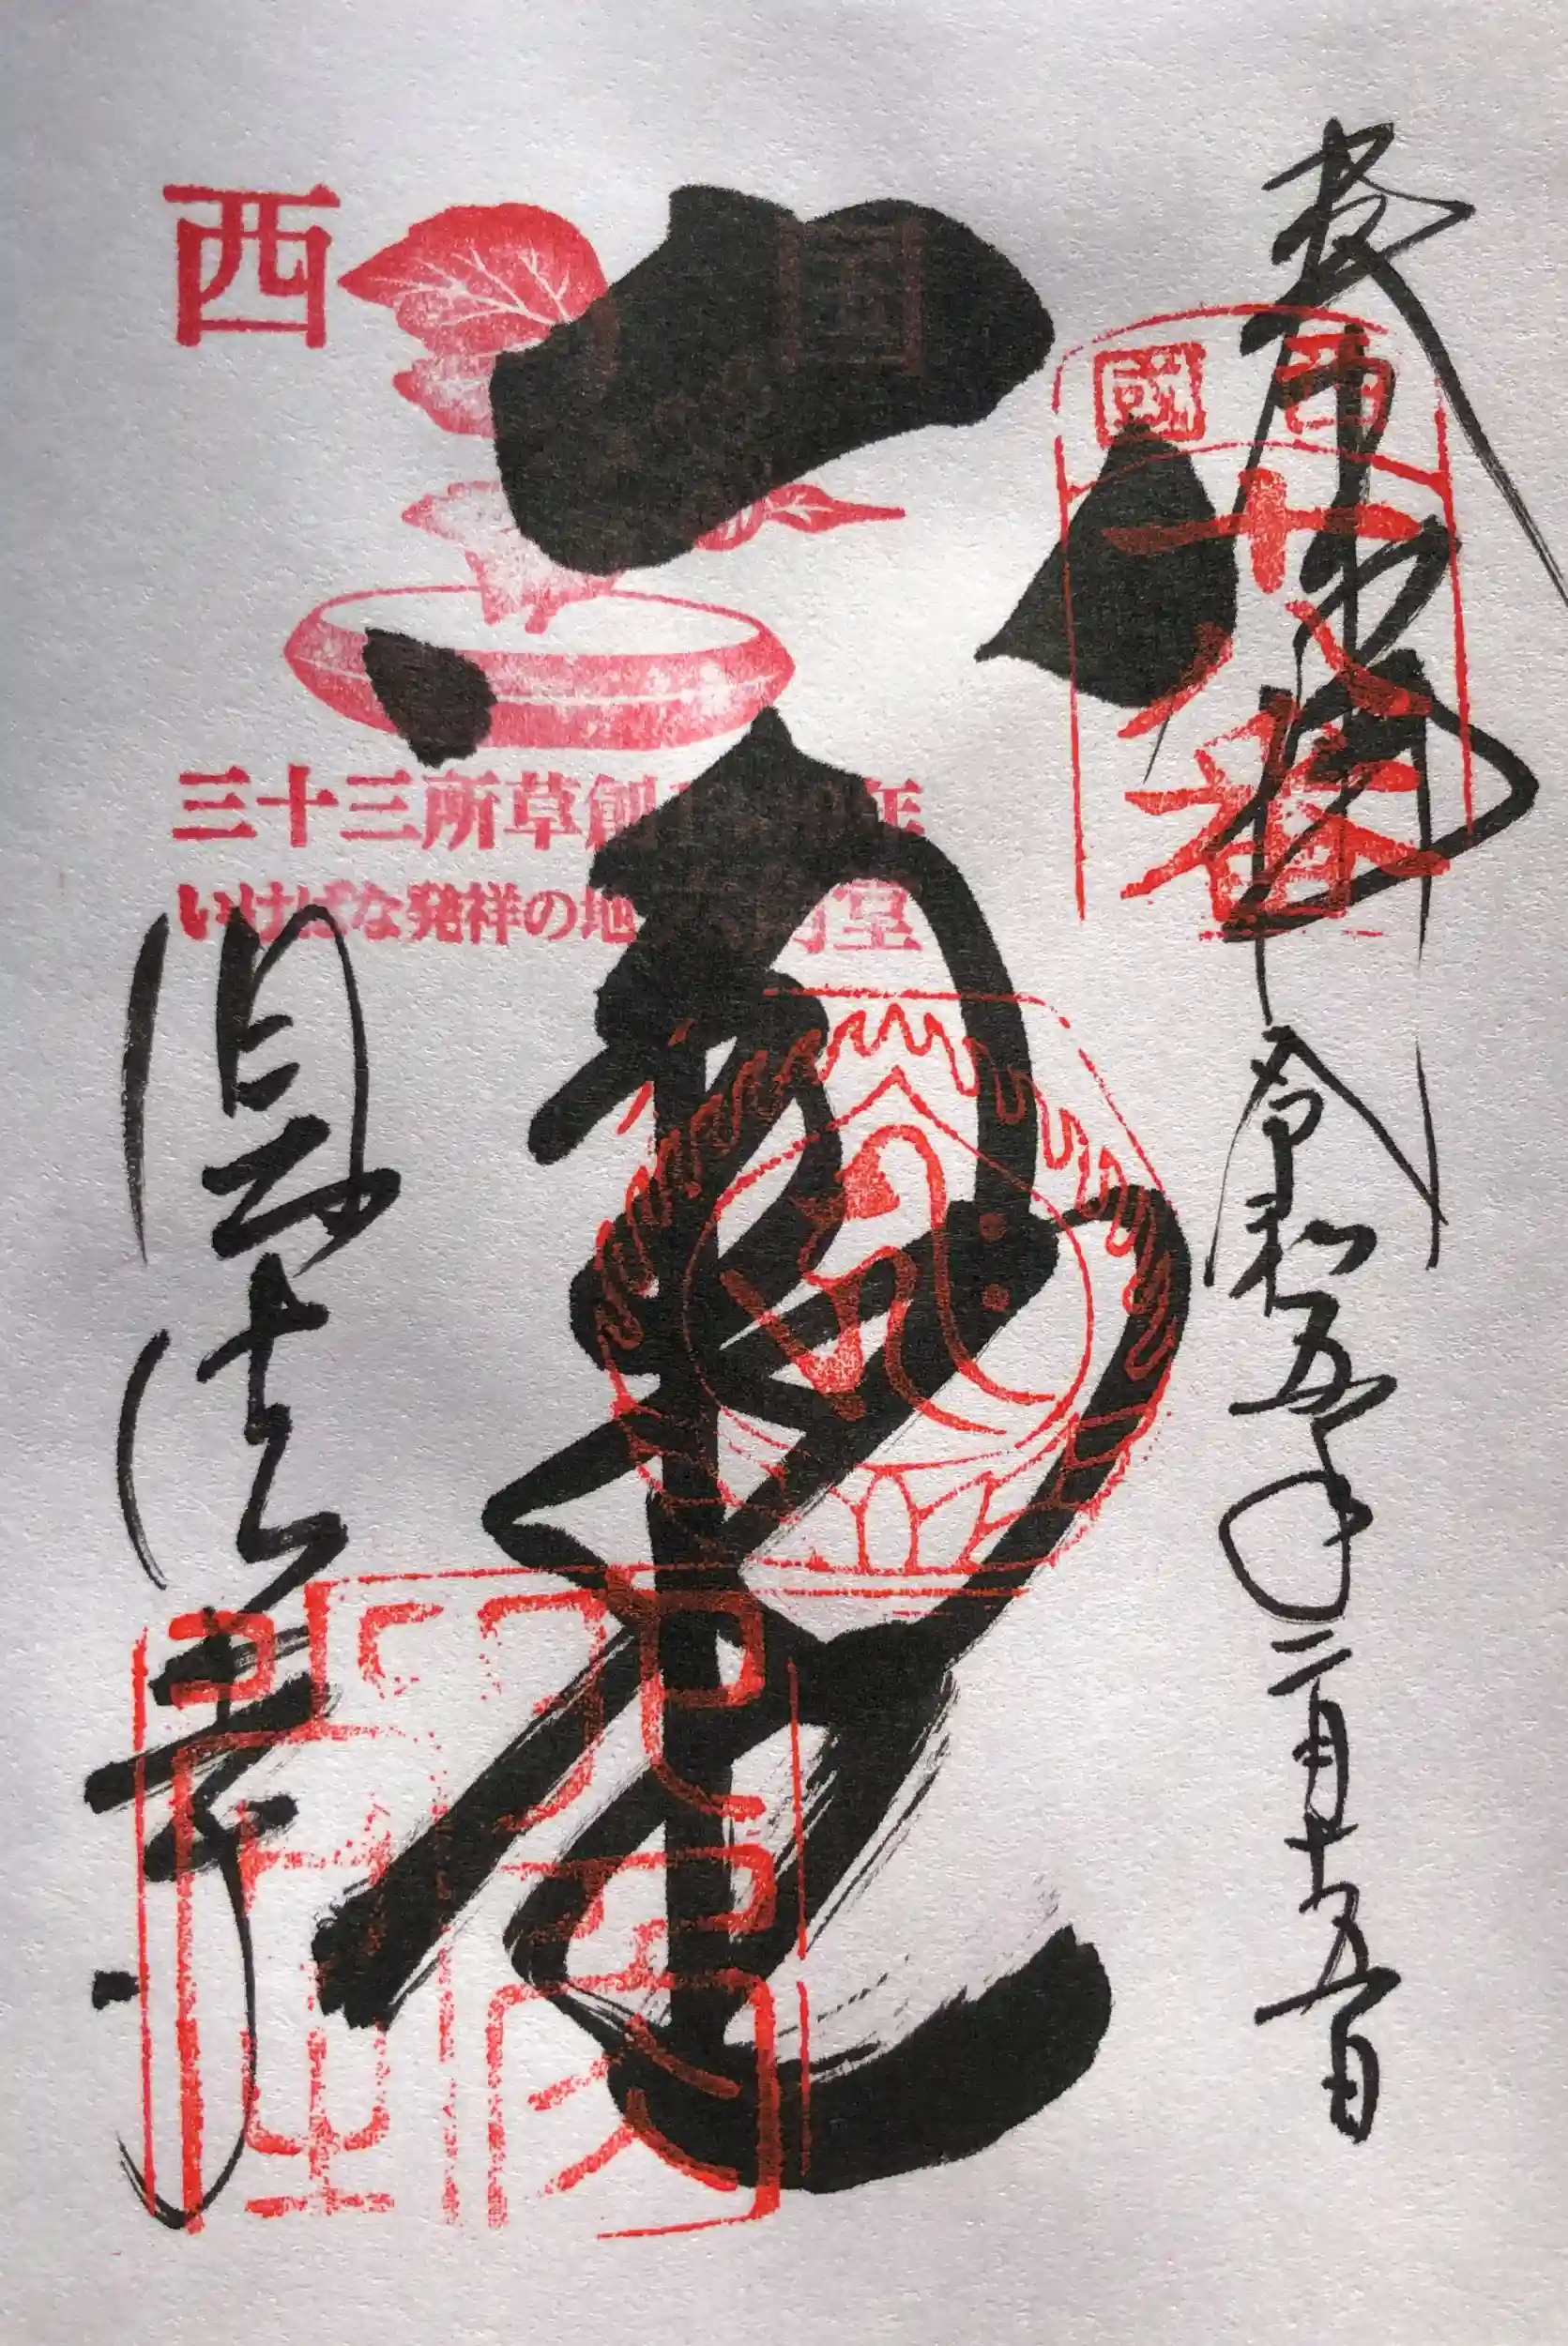 奉拝 令和五年二月十五日
西國
十八番
西国
三十三所草創 年
いけばな発祥の地 六角堂
六角堂
頂法寺